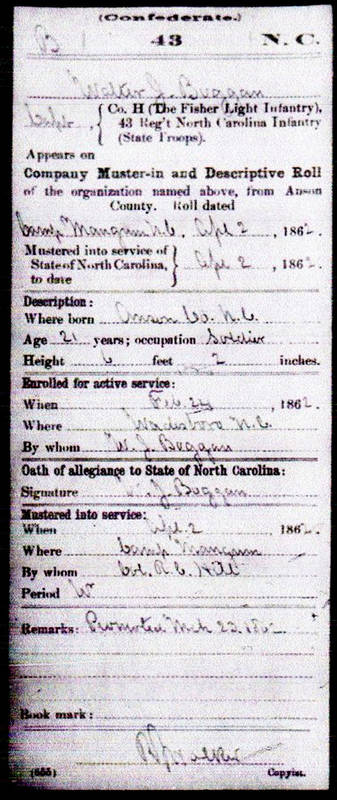 (Confederate.)
B 43 N. C.
Walter J. Boggan
Co. H (The Fisher Light Infantry),
43 Reg't North Carolina Infantry
(State Troops).
Appears on
Company Muster-in and Descriptive Roll
of the organization named above, from Anson
County. Roll dated
Camp Mangum N.C. Apl 2, 1862.
Mustered into service of
State of North Carolina, Apl 2, 1862.
to date
Description:
Where born Anson Co. N.C.
Age 21 years; occupation Soldier
Height 6 feet 2 inches.
Enrolled for active service:
When Feb. 24, 1862.
Where Wadesboro N.C.
By whom W. J. Boggan
Oath of allegiance to State of North Carolina:
Signature W. J. Boggan
Mustered into service:
When Apl 2 1862.
Where Camp Mangum
By whom Col. R. C. Hill
Period War
Remarks: Promoted Mch 23, 1862.
Book mark:
Walker
(655) Copyist.